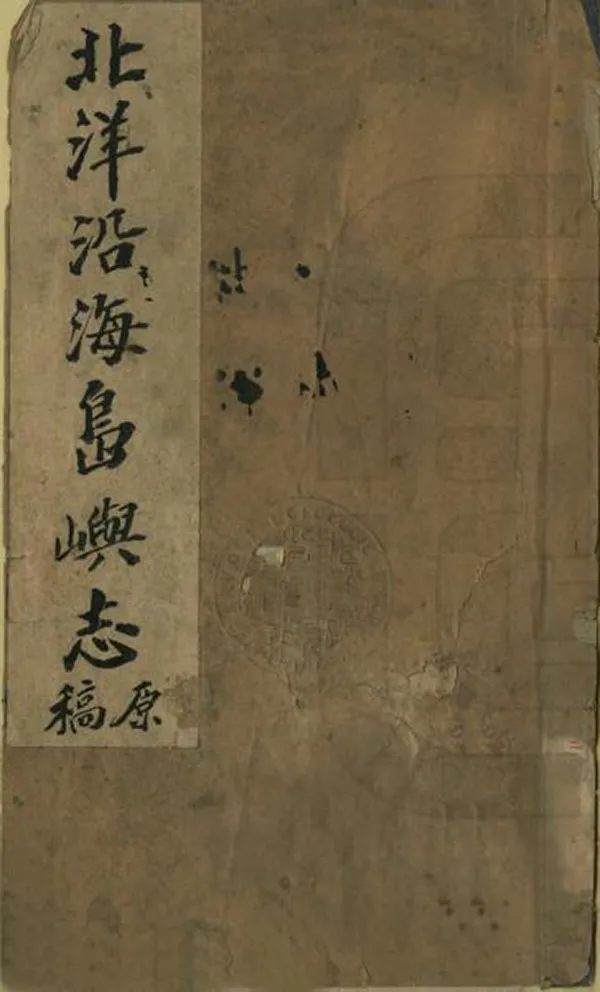 北洋沿海島嶼志
原稿